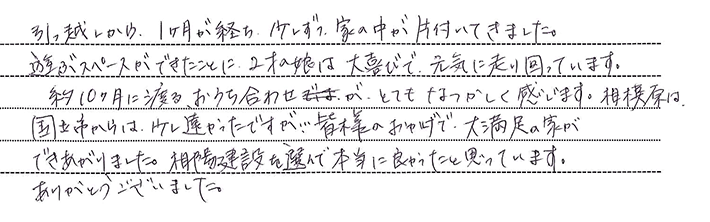 引っ越しから、1ヶ月が経ち、少しずつ、家の中が片付いてきました。
遊ぶスペースができたことに、2才の娘は大喜びで、元気に走り回っています。
約10ヶ月に渡る、おうち合わせが、とてもなつかしく感じます。相模原は、
国立市からは、少し遠かったですが…皆様のおかげで、大満足の家が
できあがりました。相陽建設を選んで本当に良かったと思っています。
ありがとうございました。